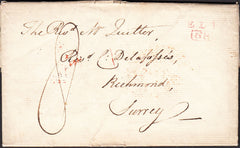 The Revd. Mr Quitter,
Revd. C. Delafosse's,
Richmond,
Surrey